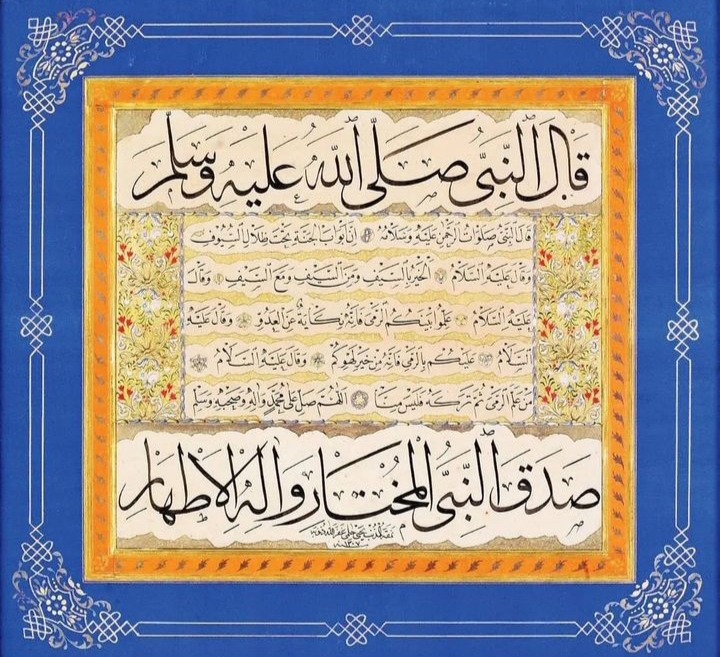 قَالَ النَّبِيُّ صَلَّى اللهُ عَلَيْهِ وَسَلَّمَ
قَالَ النَّبِيُّ صَلَوَاتُ الرَّحْمٰنِ عَلَيْهِ وَسَلَامُهُ إِنَّ أَبْوَابَ الْجَنَّةِ تَحْتَ ظِلَالِ السُّيُوفِ
وَقَالَ عَلَيْهِ السَّلَامُ الْخَيْرُ بِالسَّيْفِ وَمِنَ السَّيْفِ وَمَعَ السَّيْفِ وَقَالَ
عَلَيْهِ السَّلَامُ عَلِّمُوا بَنِيكُمُ الرَّمْيَ فَإِنَّهُ نِكَايَةٌ عَنِ الْعَدُوِّ وَقَالَ عَلَيْهِ
السَّلَامُ عَلَيْكُمْ بِالرَّمْيِ فَإِنَّهُ مِنْ خَيْرِ لَهْوِكُمْ وَقَالَ عَلَيْهِ السَّلَامُ
مَنْ عَلِمَ الرَّمْيَ ثُمَّ تَرَكَهُ فَلَيْسَ مِنَّا اَللّٰهُمَّ صَلِّ عَلَى مُحَمَّدٍ وَآلِهِ وَصَحْبِهِ وَسَلِّمْ
صَدَقَ النَّبِيُّ الْمُخْتَارُ وَآلِهِ الْأَطْهَارِ
يحيى حلمى غفر الله ذنوبه
سنة ١٣٠٧